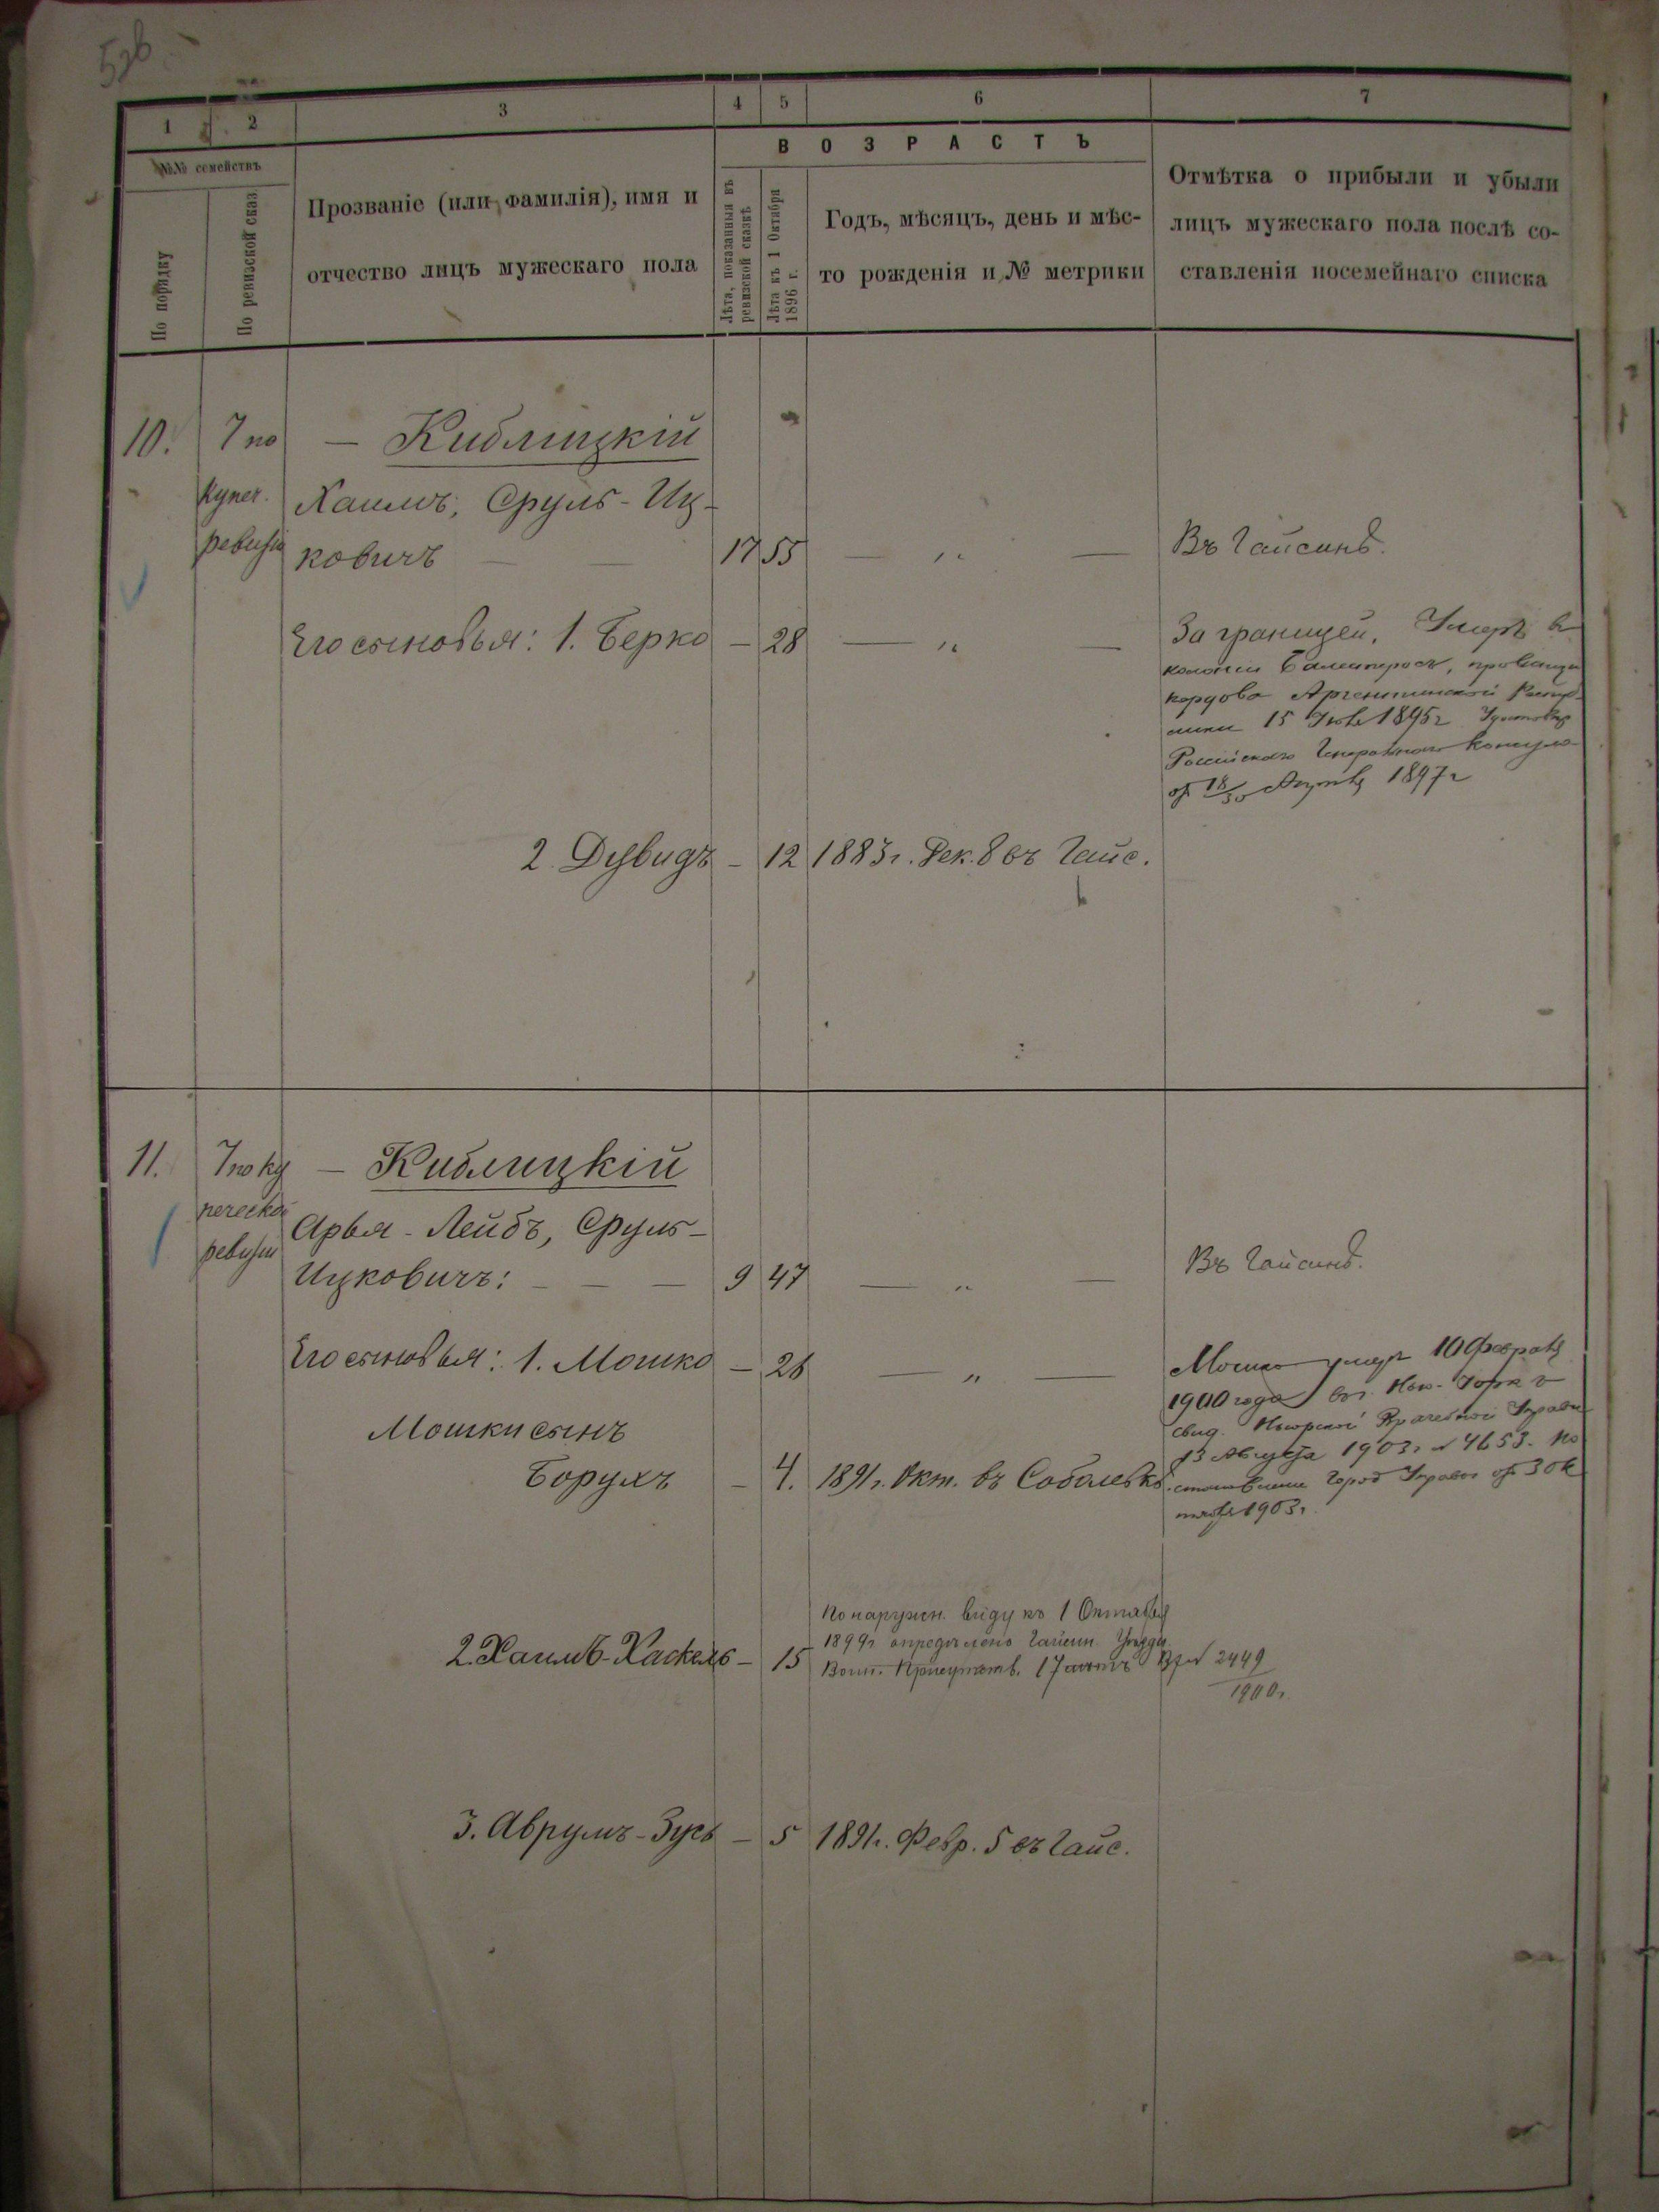 1 2 3 4 5 6 7
№№ семействъ
По порядку
По ревизской сказ
Прозваніе (или фамилія), имя и
отчество лицъ мужескаго пола
ВОЗРАСТЪ
Лѣта, показанныя въ
ревизской сказкѣ
Лѣта къ 1 Октября
1896 г.
Годъ, мѣсяцъ, день и мѣс-
то рожденія и № метрики
Отмѣтка о прибыли и убыли
лицъ мужескаго пола послѣ со-
ставленія посемейнаго списка
10. 7 по — Киблицкій
купеч. Хаимъ, Сруль-Иц-
ревизіи ковичъ — — 17 55 — " — Въ Гайсинѣ.
Его сыновья: 1. Берко — 28 — " — За границей. Умеръ в
колоніи , провинціи
Кордова Аргентинской Респуб-
лики 15 1895 г
Россійскаго Генеральнаго Консула
от 18/30 1897 г
2 Дувидъ — 12 1883 г. Дек. 8 въ Гайс.
11. 7 по ку — Киблицкій
печеской Арья-Лейбъ, Сруль-
ревизіи Ицковичъ: — — — 9 47 — " — Въ Гайсинѣ.
Его сыновья: 1. Мошко — 26 — " — Мошко умеръ 10 Февраля
1900 года в г. Нью-Іорк
свид. Врачебной Управы
13 Августа 1903 г № 4653. По
Мошки сынъ
Борухъ — 4. 1891 г. Окт. въ Соболевкѣ. становленіе Город Управы от 30 к
1903 г.
По наружн. виду къ 1 Октября
1899 г. опредѣлено Гайсин. Уѣздн.
2. Хаимъ-Хаскель — 15 Воин. Присутств. 17 лѣтъ № 2449
1900 г.
3. Аврумъ-Зусь — 5 1891 г. Февр. 5 въ Гайс.